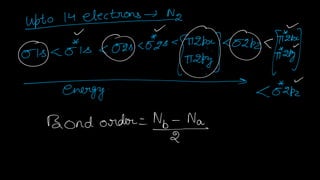 Upto 14 electrons → N₂
σ1s < σ*1s < σ2s < σ*2s < [π2px π2py] < σ2pz < [π*2px π*2py]
< σ*2pz
Energy
Bond order = Nb - Na / 2